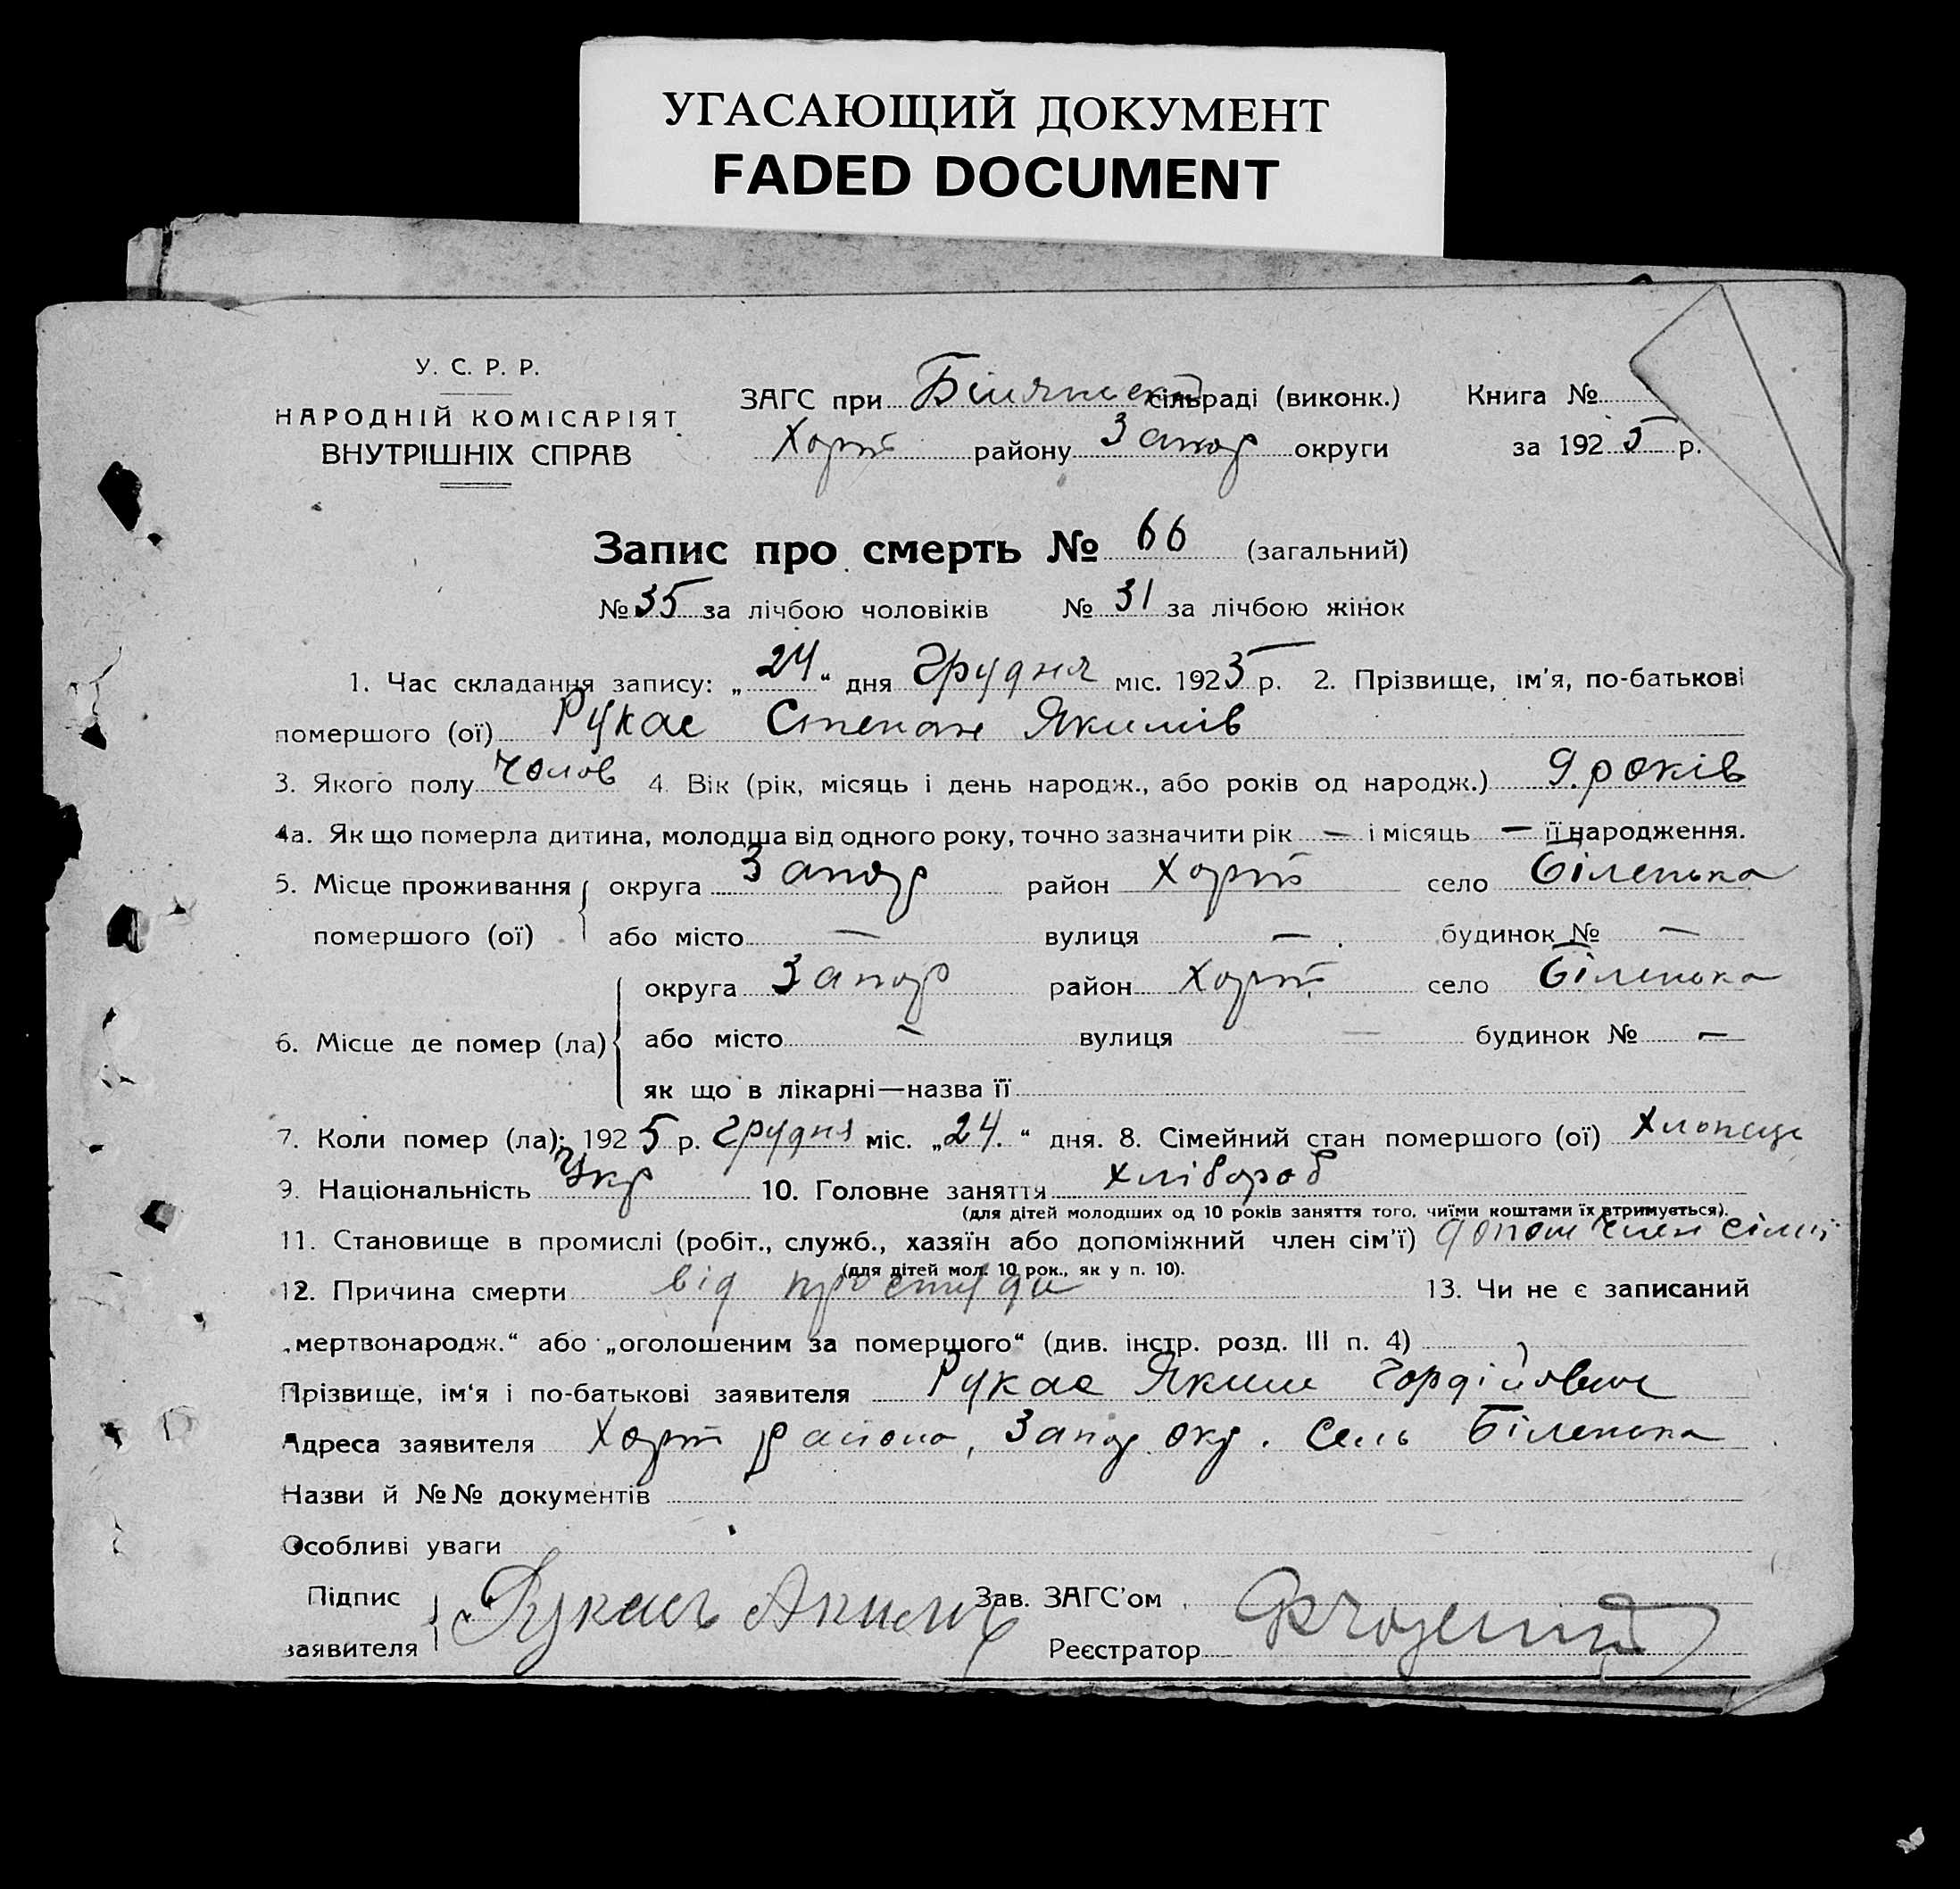 УГАСАЮЩИЙ ДОКУМЕНТ
FADED DOCUMENT
У. С. Р. Р.
НАРОДНІЙ КОМІСАРІЯТ
ВНУТРІШНІХ СПРАВ
ЗАГС при сільраді (виконк.)
Хорт району Запор округи
Книга №
за 1925 р.
Запис про смерть № 66 (загальний)
№ 35 за лічбою чоловіків № 31 за лічбою жінок
1. Час складання запису: „24“ дня Грудня міс. 1925 р. 2. Прізвище, ім'я, по-батькові
помершого (ої) Рукас Степан Якимів
3. Якого полу Чолов 4. Вік (рік, місяць і день народж., або років од народж.) 9. років
4а. Як що померла дитина, молодша від одного року, точно зазначити рік — і місяць — її народження.
5. Місце проживання помершого (ої) округа Запор район Хорт село Біленька
або місто — вулиця — будинок № —
6. Місце де помер (ла) округа Запор район Хорт село Біленька
або місто — вулиця — будинок № —
як що в лікарні—назва її
7. Коли помер (ла): 1925 р. Грудня міс. „24.“ дня. 8. Сімейний стан помершого (ої)
9. Національність Укр 10. Головне заняття хлібороб
(для дітей молодших од 10 років заняття того, чиїми коштами їх втримується).
11. Становище в промислі (робіт., служб., хазяїн або допоміжний член сім'ї) допом член сімї
(для дітей мол. 10 рок., як у п. 10).
12. Причина смерти від простуди 13. Чи не є записаний
„мертвонародж.“ або „оголошеним за помершого“ (див. інстр. розд. III п. 4)
Прізвище, ім'я і по-батькові заявителя Рукас Яким Гордійович
Адреса заявителя Хорт района, Запор. окр. Село Біленька
Назви й №№ документів
Особливі уваги
Підпис заявителя Рукась Аким
Зав. ЗАГС'ом
Реєстратор